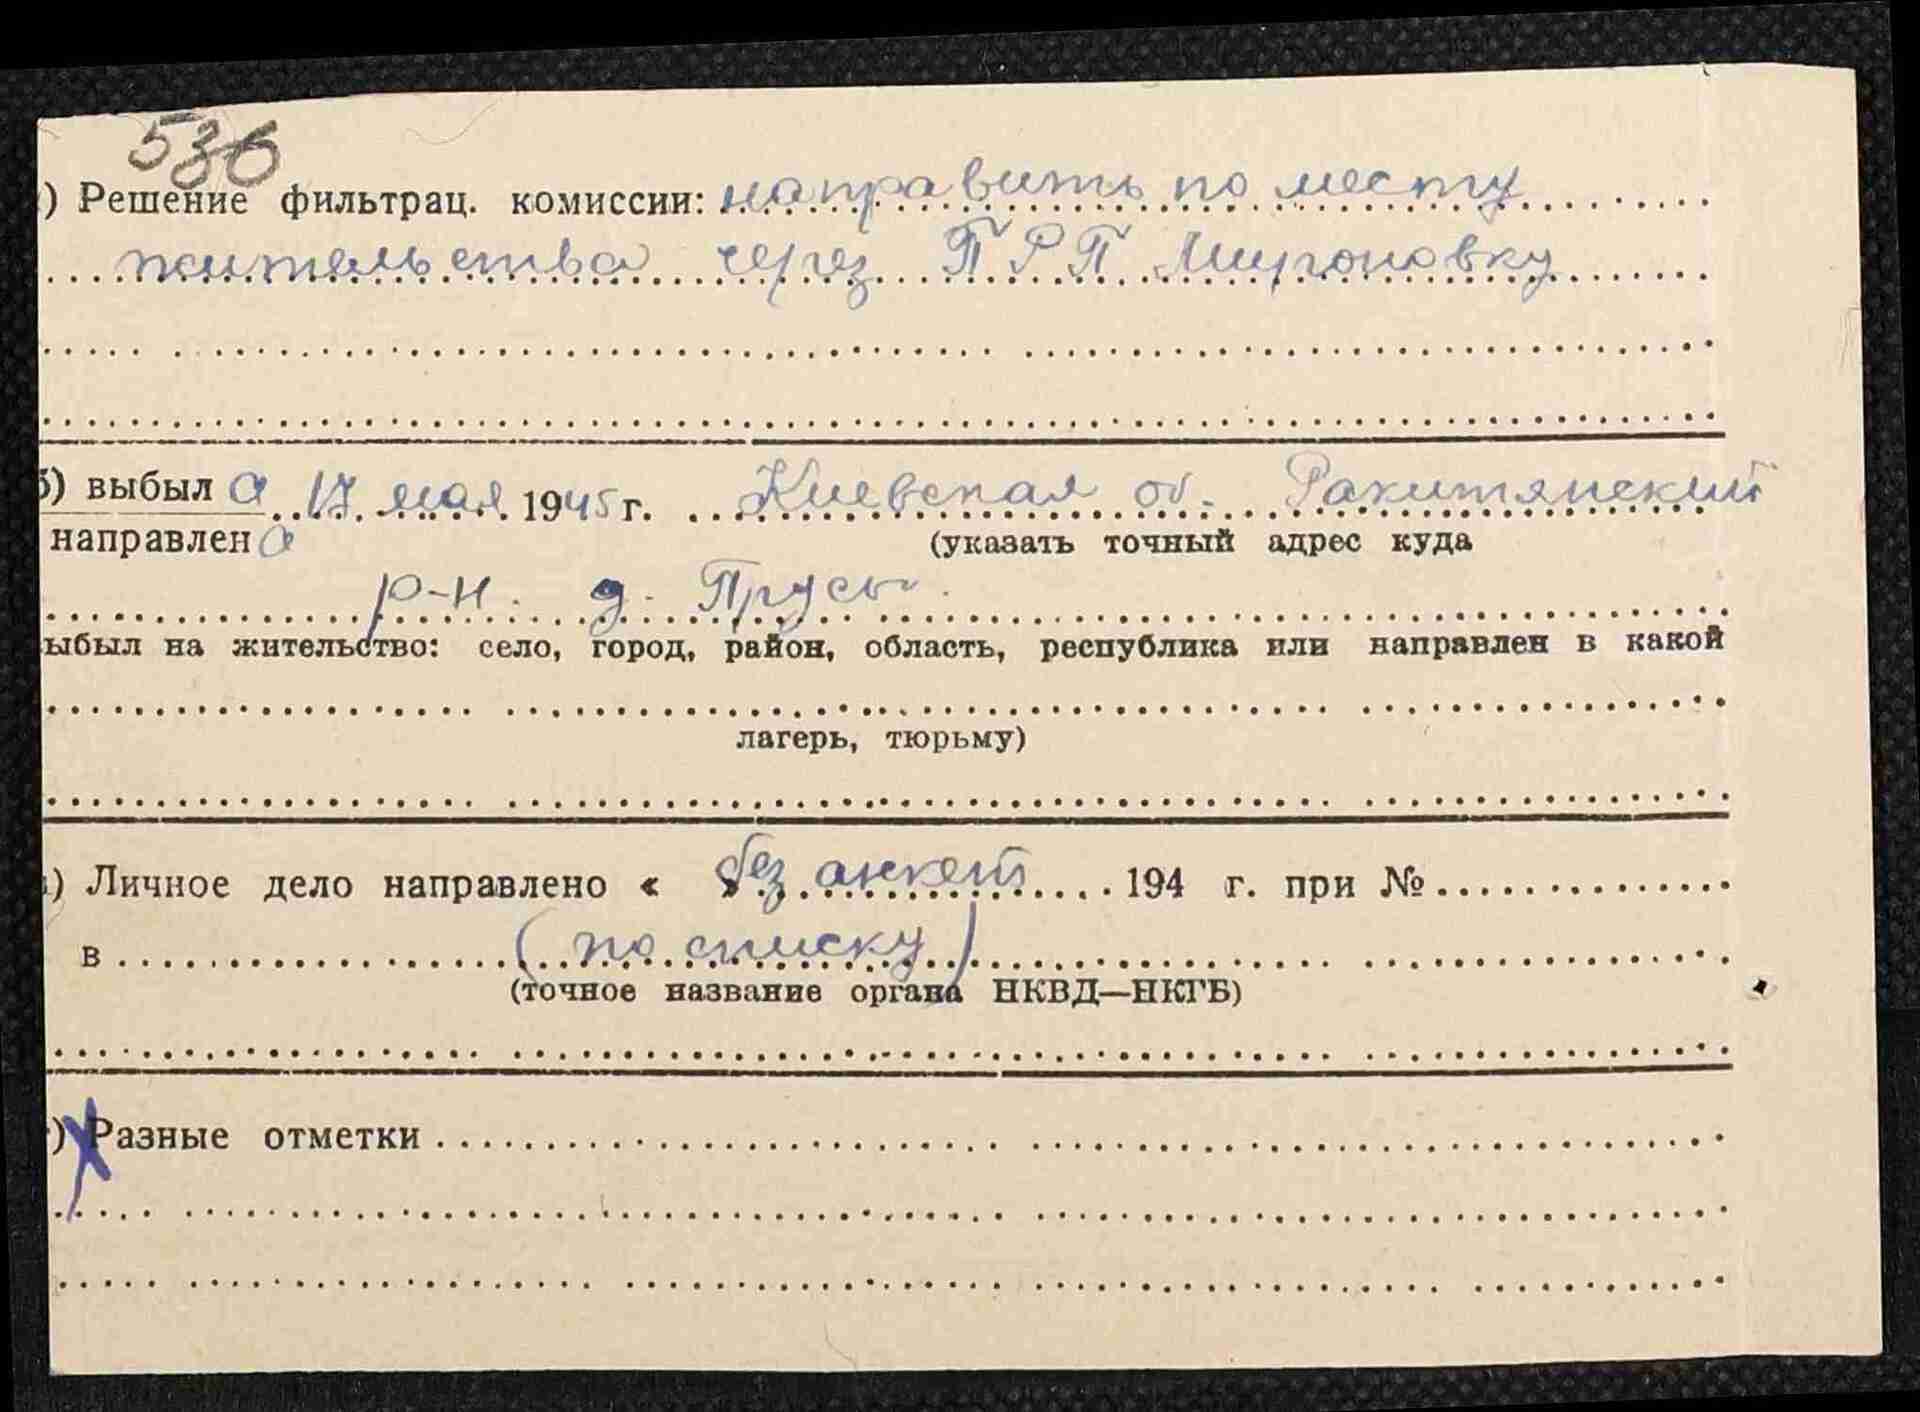 536
) Решение фильтрац. комиссии: направить по месту
жительства через ПРП Мироновку
б) выбыл а 17 мая 1945 г. Киевская об. Ракитянский
направлен а (указать точный адрес куда
р-н. д. Прусы.
ыбыл на жительство: село, город, район, область, республика или направлен в какой
лагерь, тюрьму)
) Личное дело направлено « » без анкет 194 г. при №
в (по списку)
(точное название органа НКВД—НКГБ)
) Разные отметки